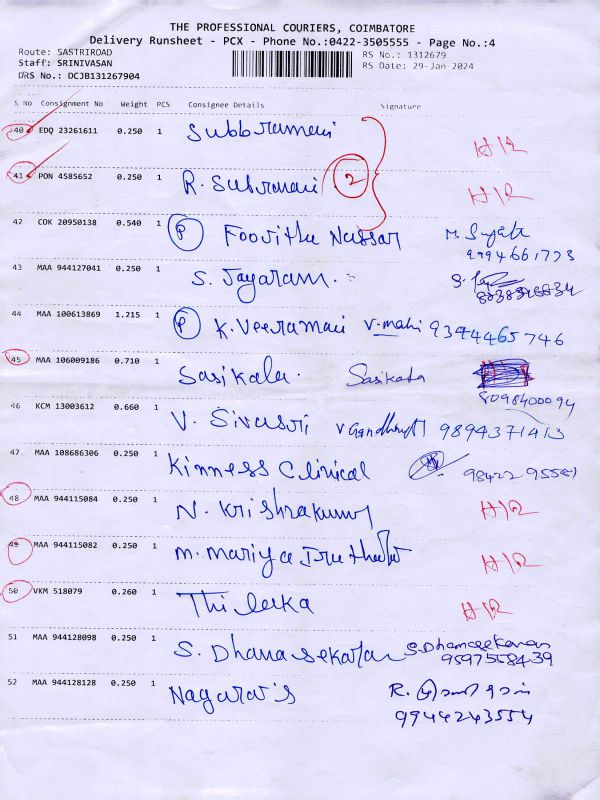 THE PROFESSIONAL COURIERS, COIMBATORE
Delivery Runsheet - PCX - Phone No.:0422-3505555 - Page No.:4
Route: SASTRIROAD RS No.: 1312679
Staff: SRINIVASAN RS Date: 29-Jan-2024
DRS No.: DCJB131267904
S No Consignment No Weight PCS Consignee Details Signature
40 EDQ 23261611 0.250 1 Subbramani H/R
41 PON 4585652 0.250 1 R. Subramani 2 H/R
42 COK 20950138 0.540 1 P Nassar M. Sujata
9994661773
43 MAA 944127041 0.250 1 S. Jayaram.
44 MAA 100613869 1.215 1 P K. Veeramani V. mani 9344465746
45 MAA 106009186 0.710 1 Sasikala. Sasikala
8098400094
46 KCM 13003612 0.660 1 V. Sivasri 9894371413
47 MAA 108686306 0.250 1 Kinness Clinical 98422 95581
48 MAA 944115084 0.250 1 N. Krishnakumar H/R
49 MAA 944115082 0.250 1 M. Mariya H/R
50 VKM 518079 0.260 1 Thileeka H/R
51 MAA 944128098 0.250 1 S. Dhanasekaran S. Dhanasekaran
9597558439
52 MAA 944128128 0.250 1 Nagaraj's R.
9944243554